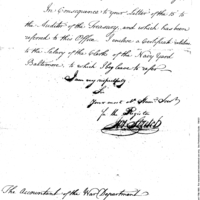 In Consequence to your Letter of the 15th to
the Auditor of the Treasury, and which has been
referred to this Office I enclose a Certificate relative
to the Salary of the Clerks of the Navy Yard
Baltimore, to which I beg leave to refer
I am very respectfully
Sir
Your most ob. Hum. Serv.
for the Register
The Accountant of the War Department